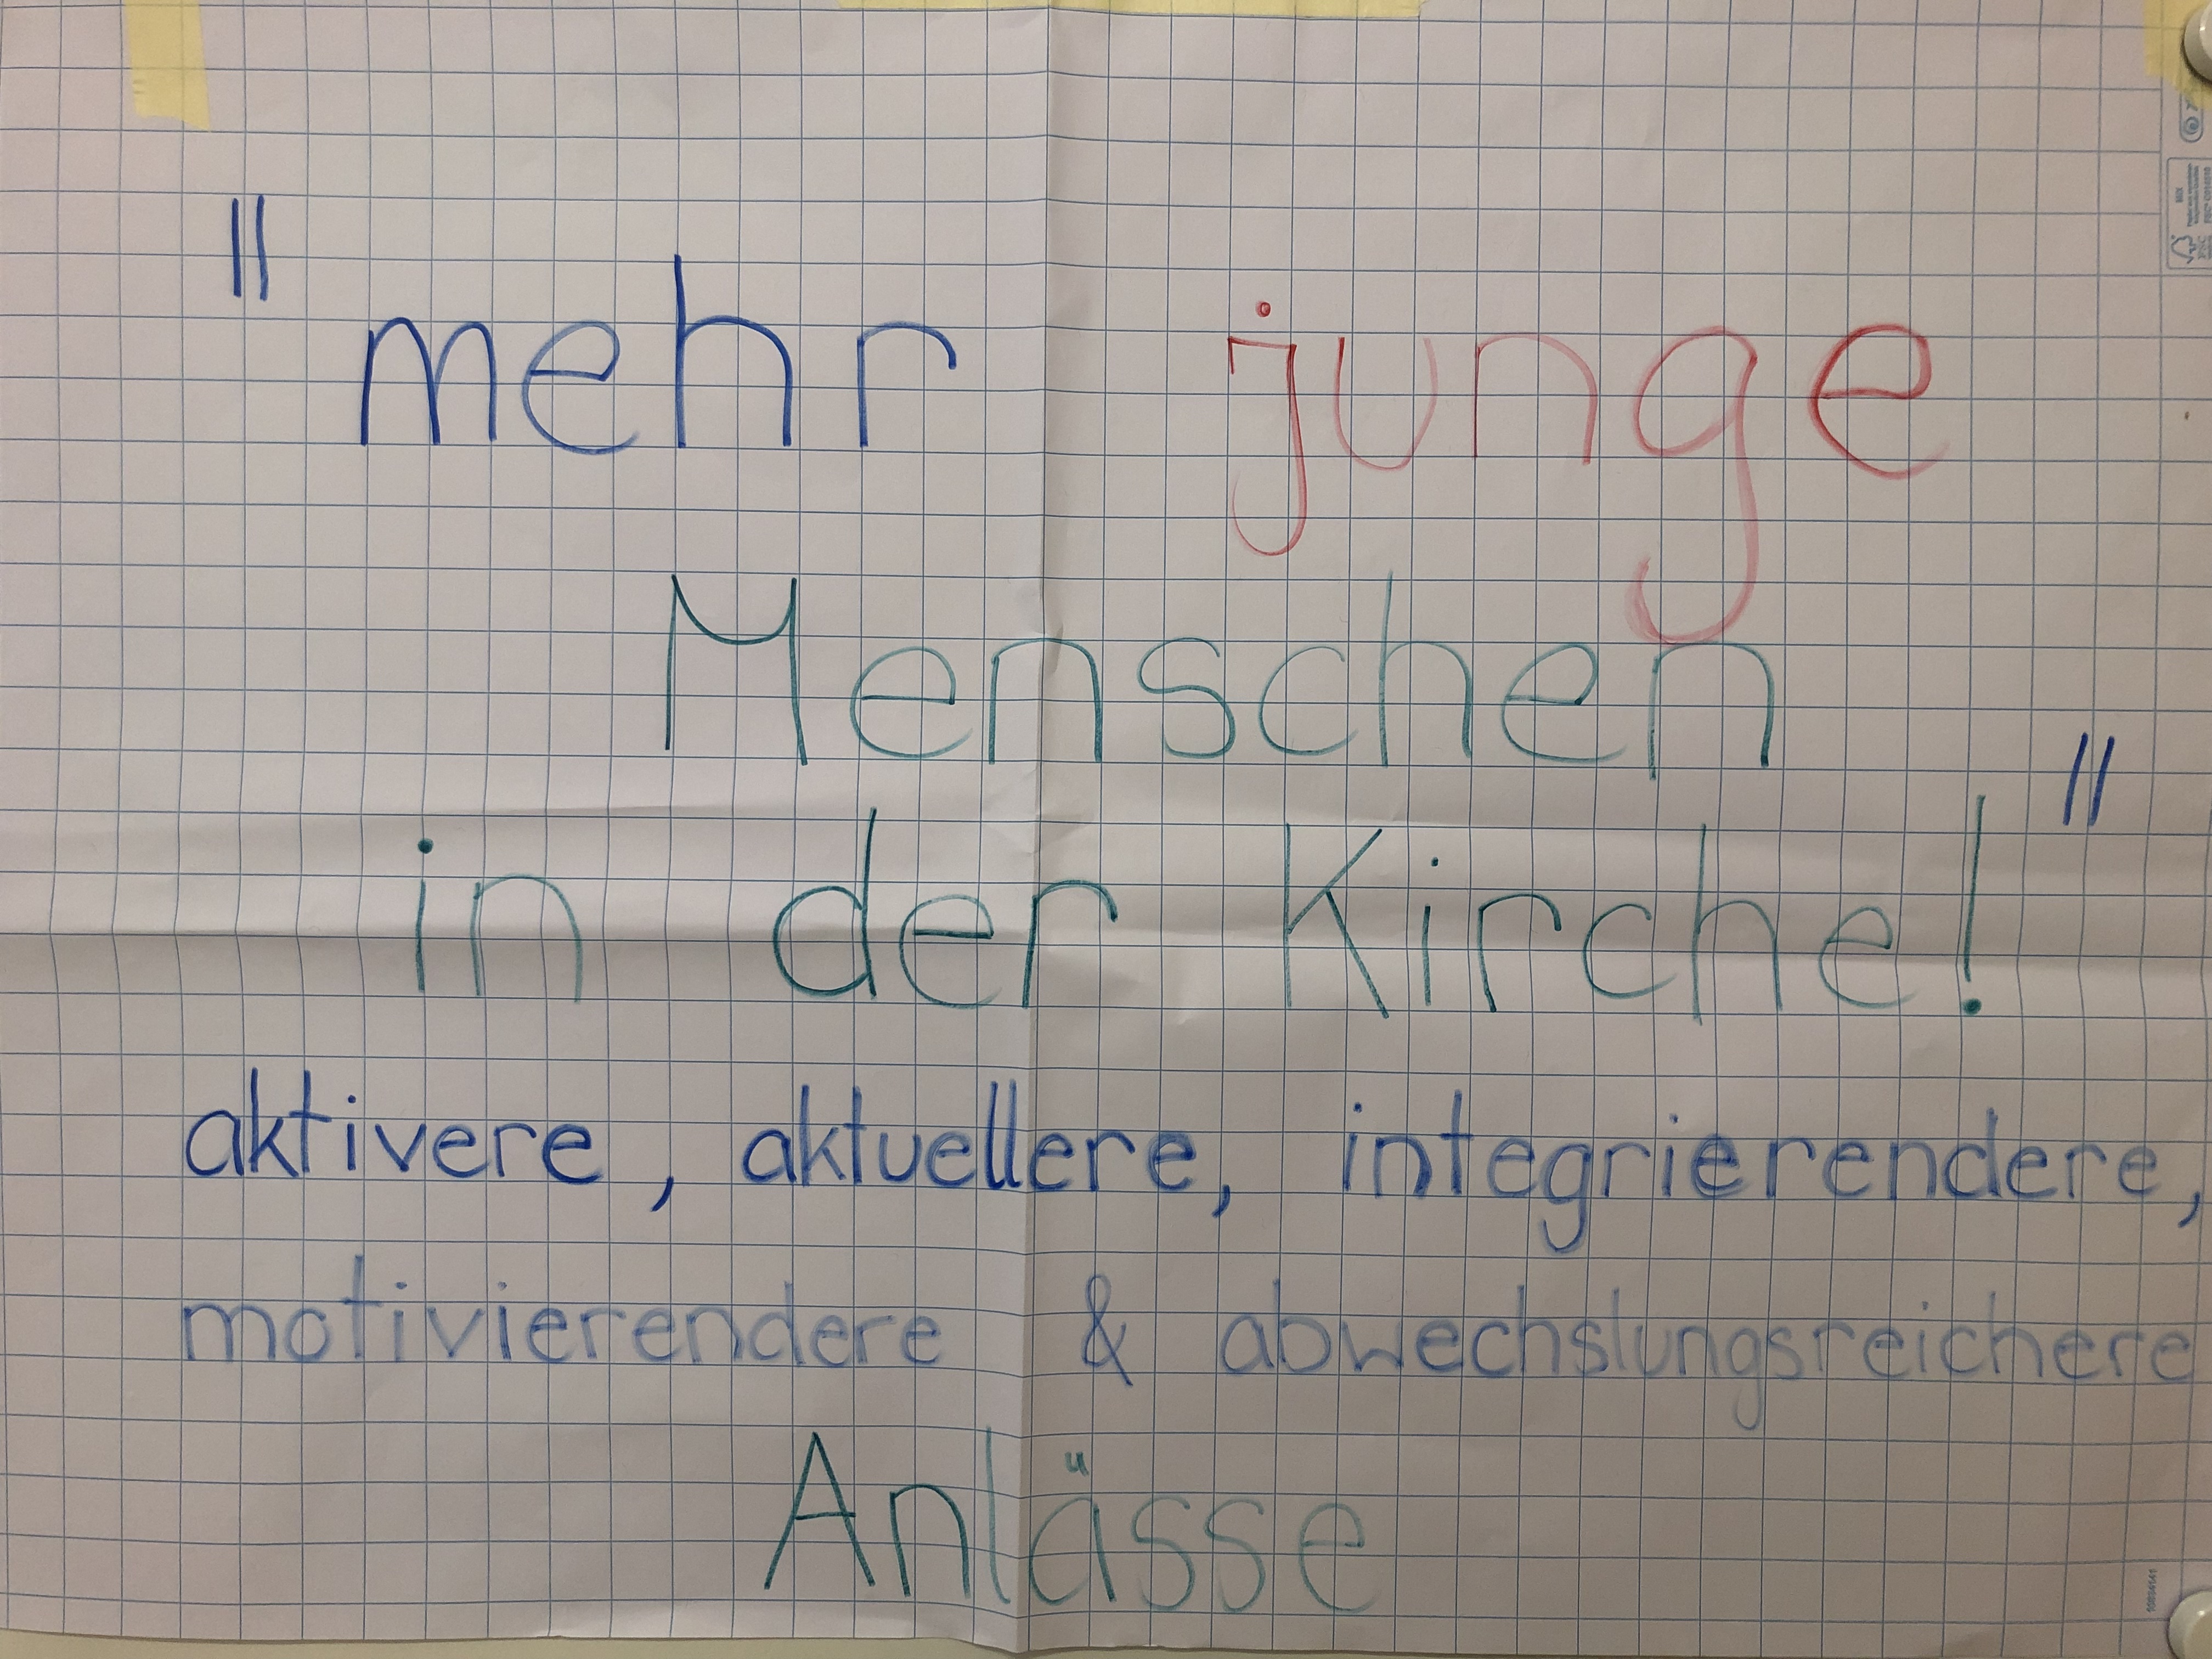 "mehr junge
Menschen
in der Kirche!"
aktivere, aktuellere, integrierendere,
motivierendere & abwechslungsreichere
Anlässe